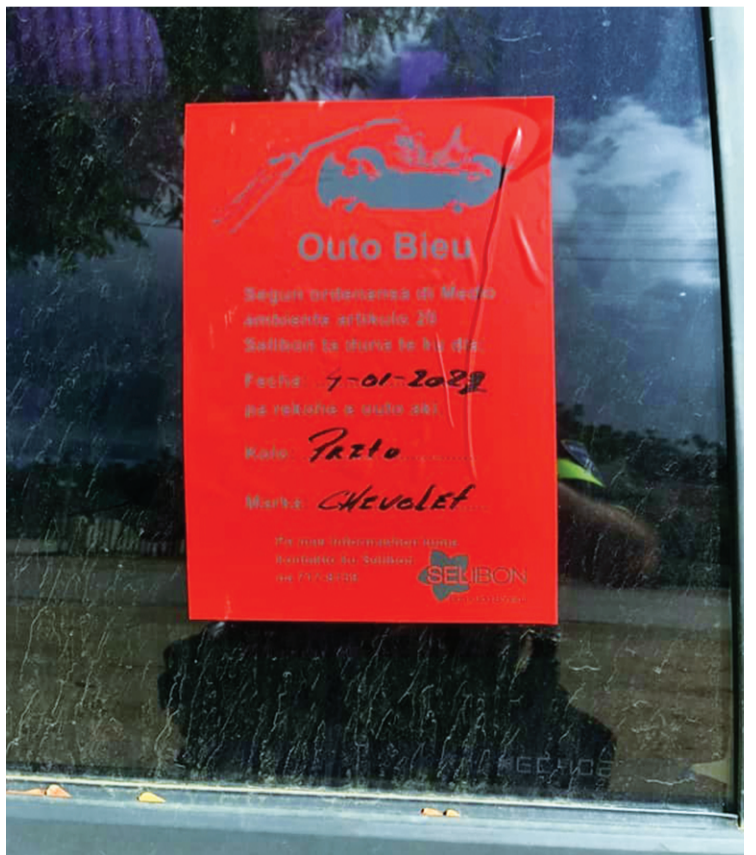 Outo Bieu
Seguri ordenansa di Medio
ambiente artikulo 28
Selibon ta duna te ku dia:
Fecha 4-01-2022
pa rekohe e outo aki
Koló Preto
Marka CHEVOLET
Pa mas informashon tuma
kontakto ku Selibon
SELIBON